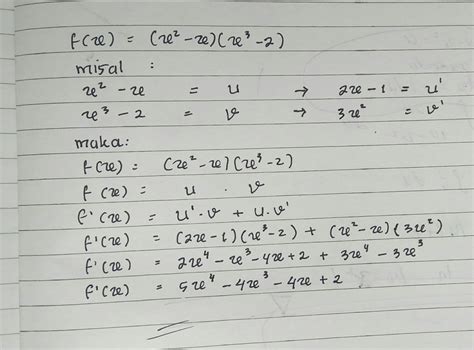 f(x) = (x² - x)(x³ - 2)
misal :
x² - x = u → 2x - 1 = u'
x³ - 2 = v → 3x² = v'
maka:
f(x) = (x² - x)(x³ - 2)
f(x) = u . v
f'(x) = u'.v + u.v'
f'(x) = (2x - 1)(x³ - 2) + (x² - x)(3x²)
f'(x) = 2x⁴ - x³ - 4x + 2 + 3x⁴ - 3x³
f'(x) = 5x⁴ - 4x³ - 4x + 2